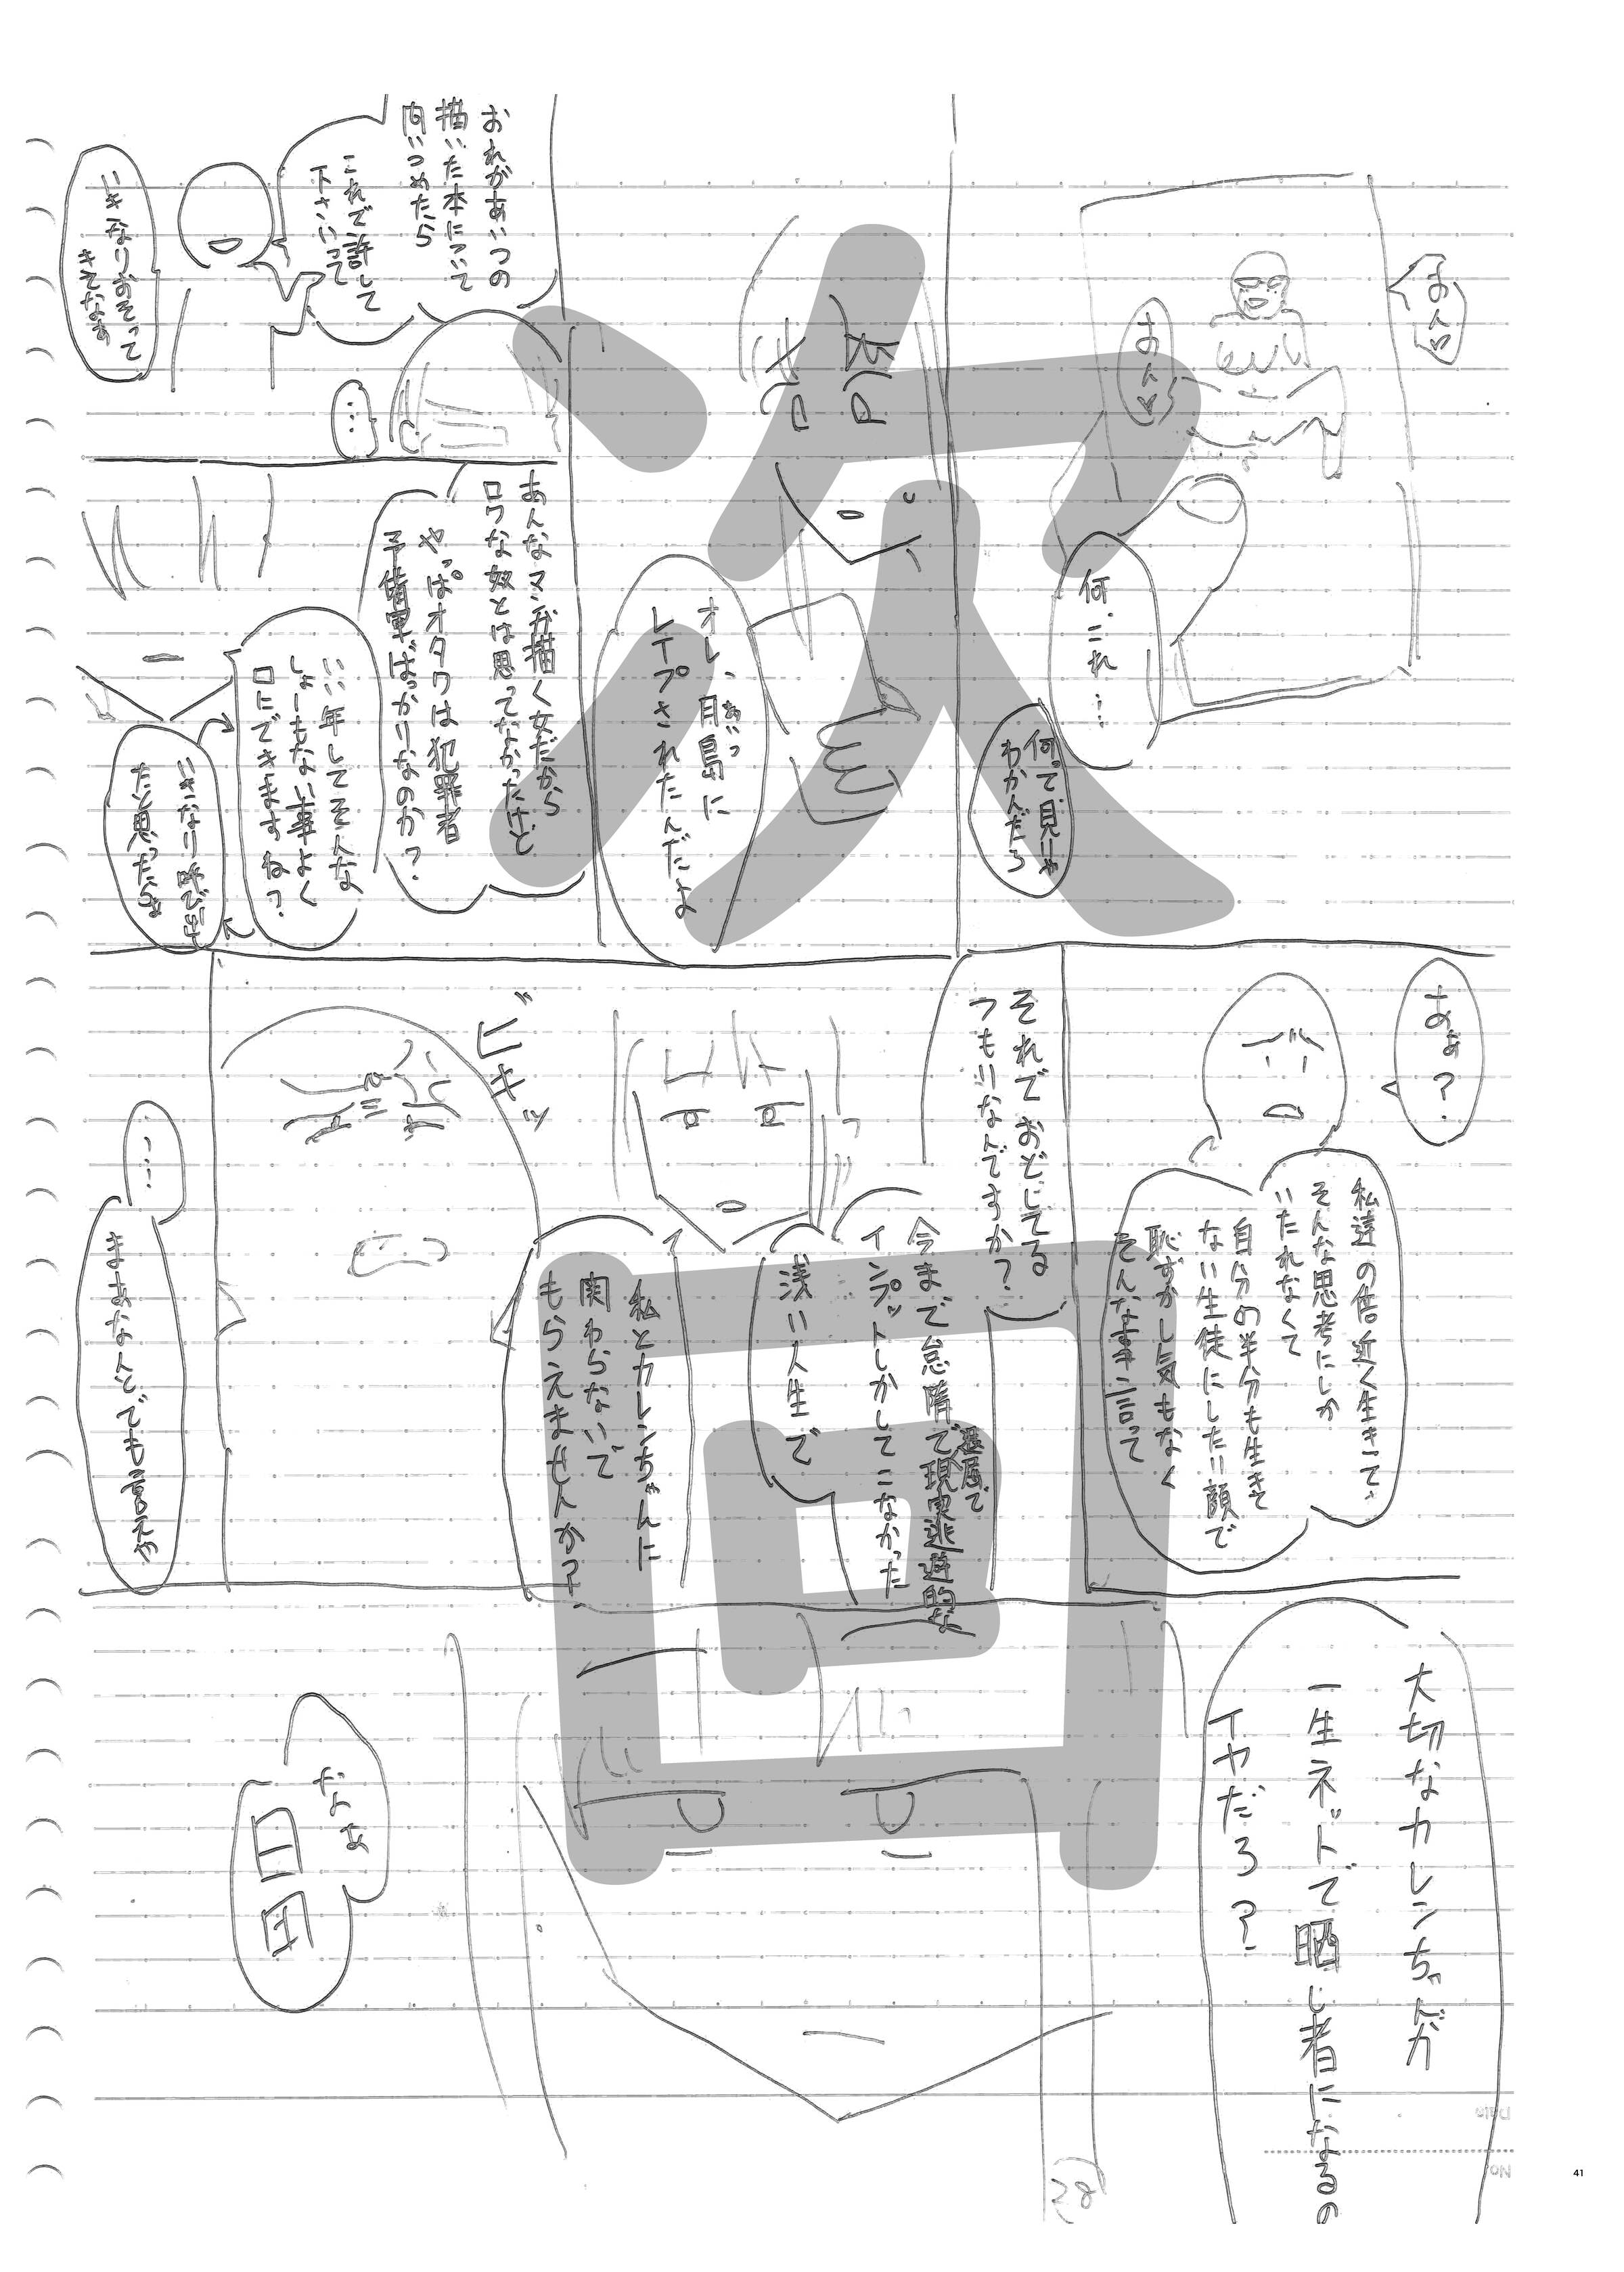 おんっ
おんっ
何、これ…
何って見りゃ
わかんだろ
オレ、目島に
あいつ
レイプされたんだよ
おれがあいつの
描いた本について
問いつめたら
これで許して
下さいって
いきなりおそって
きてなぁ
…
あんなマンガ描く女だから
ロクな奴とは思ってなかったけど
やっぱオタクは犯罪者
予備軍ばっかりなのか?
いい年してそんな
しょーもない事よく
口にできますね?
いきなり呼び出し
だと思ったら
あぁ?
私達の倍近く生きてて
そんな思考にしか
いたれなくて
自分の半分も生きて
ない生徒にしたり顔で
恥ずかし気もなく
そんなこと言って
それでおどしてる
つもりなんですか?
今まで怠惰で
退屈で
現実逃避的な
インプットしかしてこなかった
浅い人生で
私とカレンちゃんに
関わらないで
もらえませんか?
ビキッ
…
まぁなんとでも言えや
大切なカレンちゃんが
一生ネットで晒し者になるの
イヤだろ?
なぁ
日田
次回
38
Date
No.
41